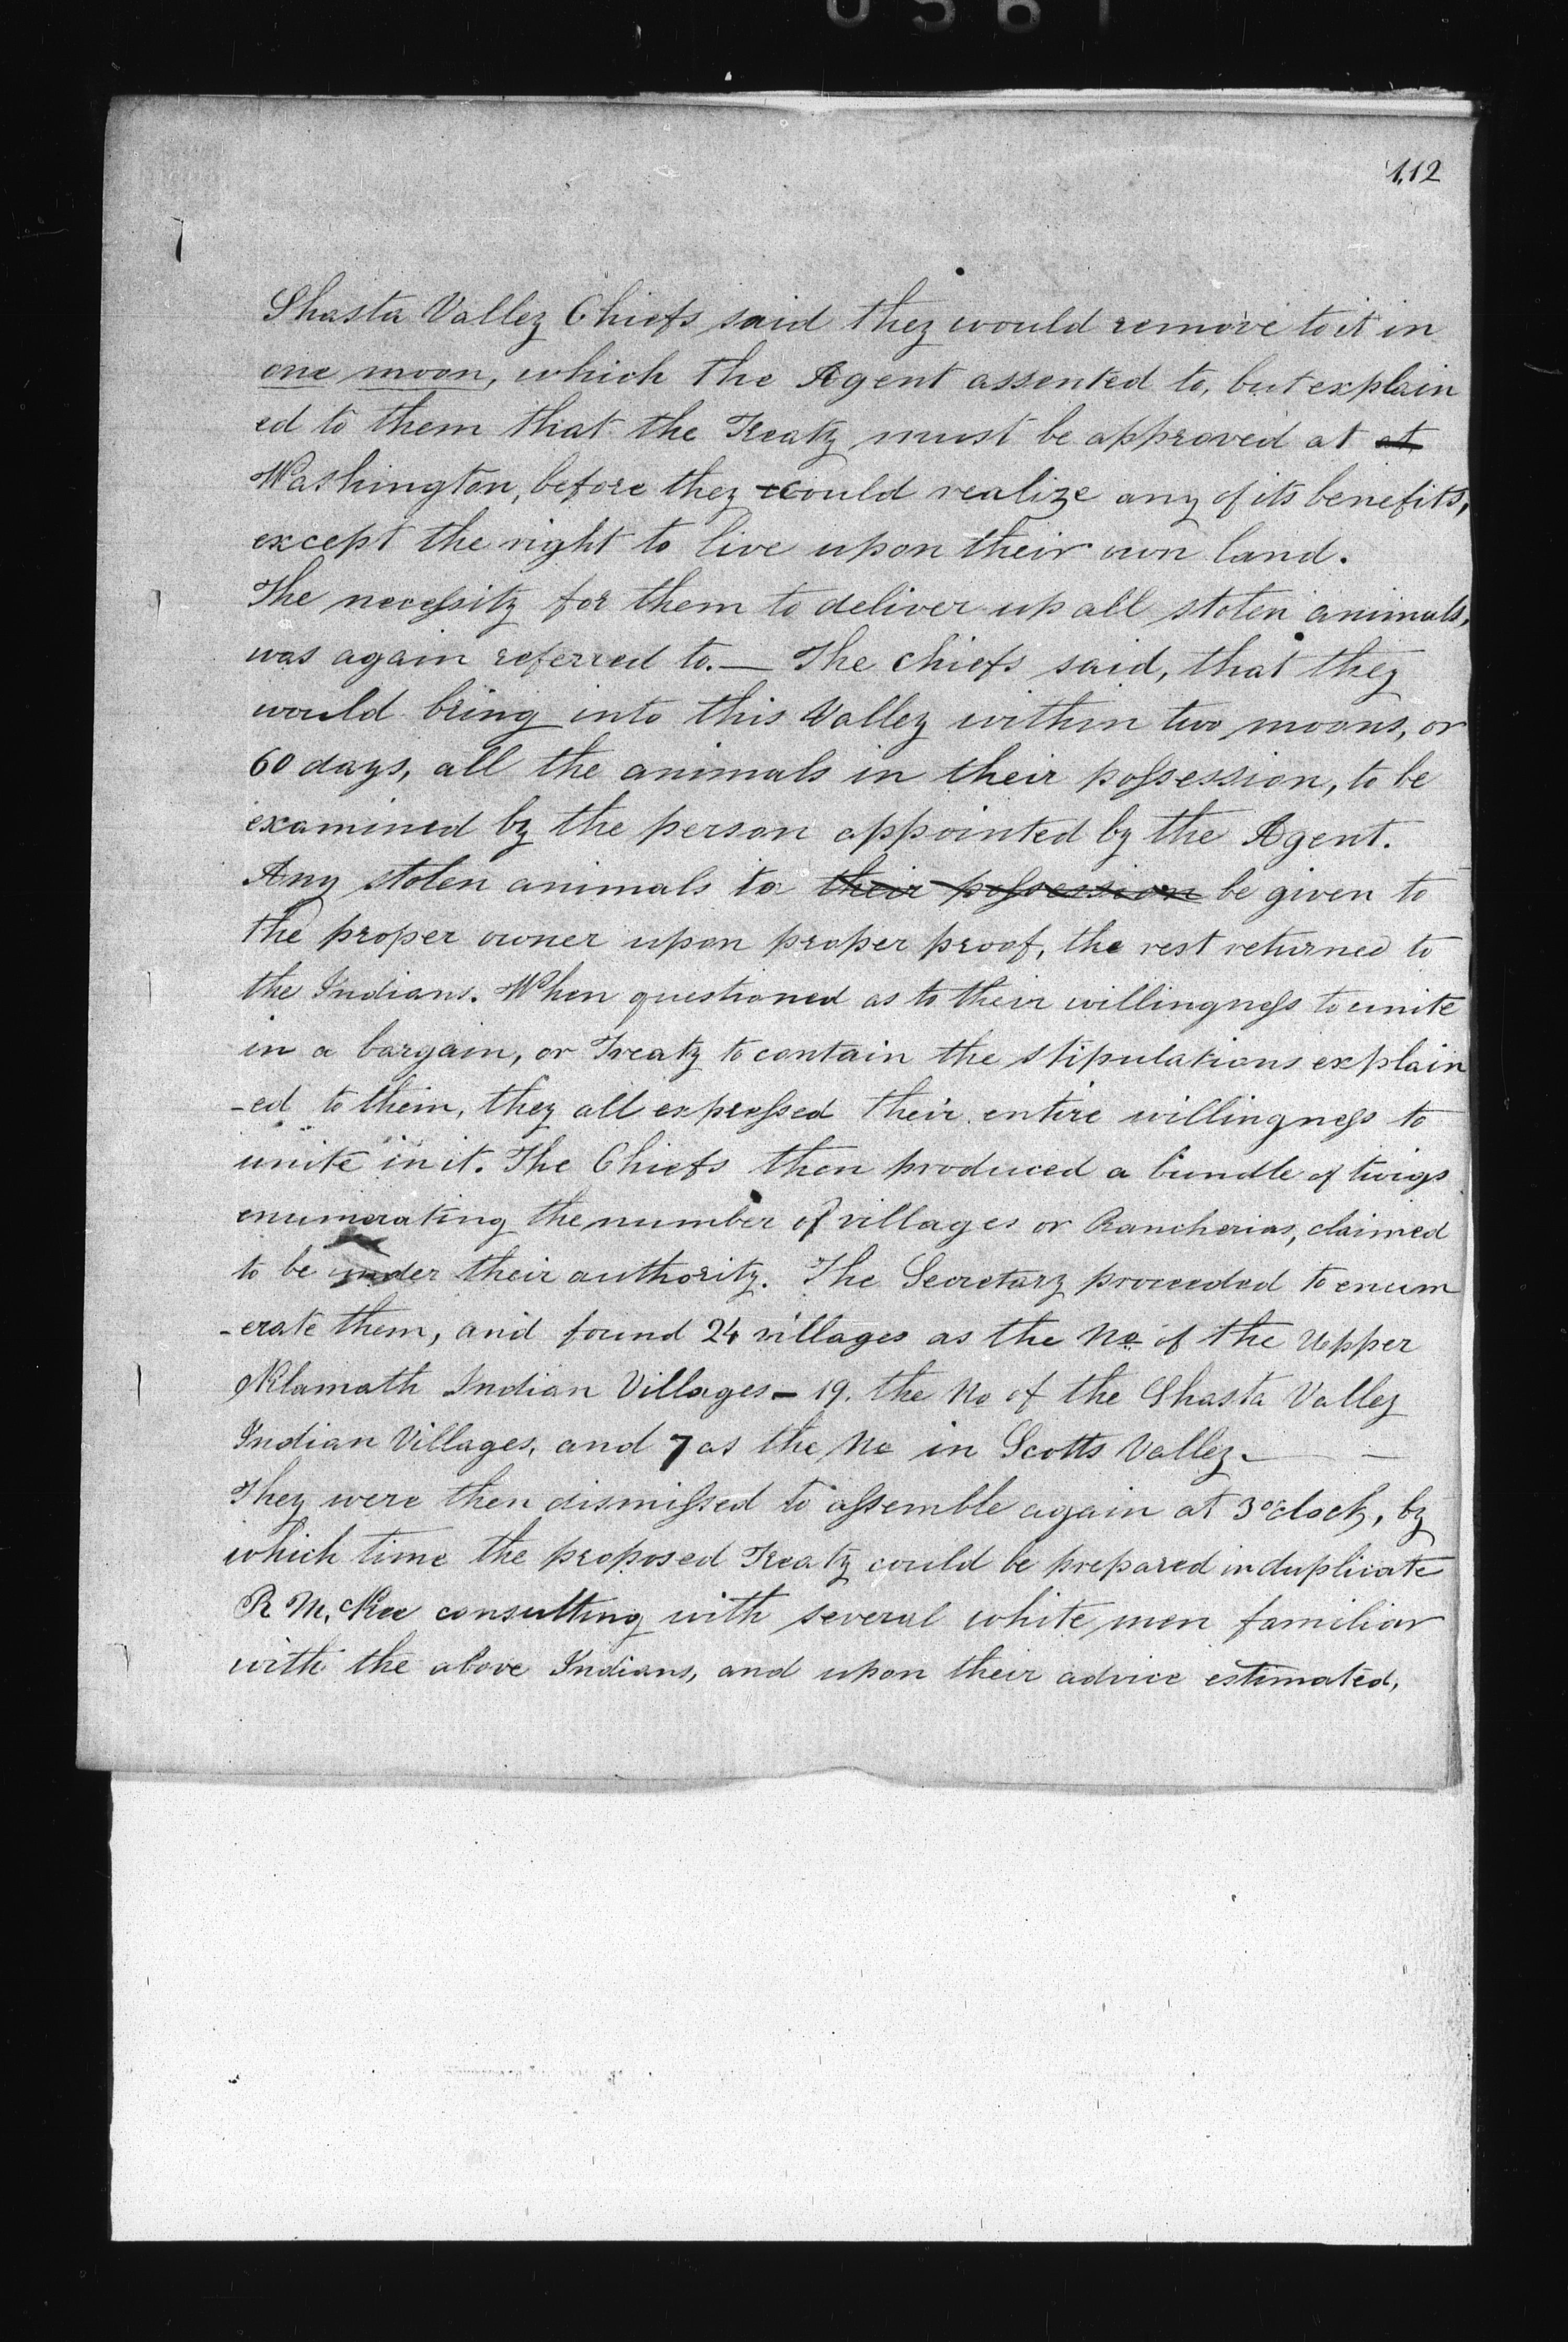 112
Shasta Valley Chiefs said they would remove to it in
one moon, which the Agent assented to, but explain
ed to them that the Treaty must be approved at at
Washington, before they could realize any of its benefits,
except the right to live upon their own land.
The necessity for them to deliver up all stolen animals,
was again referred to. — The chiefs said, that they
would bring into this Valley within two moons, or
60 days, all the animals in their possession, to be
examined by the person appointed by the Agent.
Any stolen animals to their possession be given to
the proper owner upon proper proof, the rest returned to
the Indians. When questioned as to their willingness to unite
in a bargain, or Treaty to contain the stipulations explain
-ed to them, they all expressed their entire willingness to
unite in it. The Chiefs then produced a bundle of twigs
enumerating the number of villages or Rancherias, claimed
to be under their authority. The Secretary proceeded to enum
-erate them, and found 24 villages as the No. of the Upper
Klamath Indian Villages – 19. the No of the Shasta Valley
Indian Villages, and 7 as the No in Scotts Valley. —
They were then dismissed to assemble again at 3 o'clock, by
which time the proposed Treaty could be prepared in duplicate
R McKee consulting with several white men familiar
with the above Indians, and upon their advice estimated,